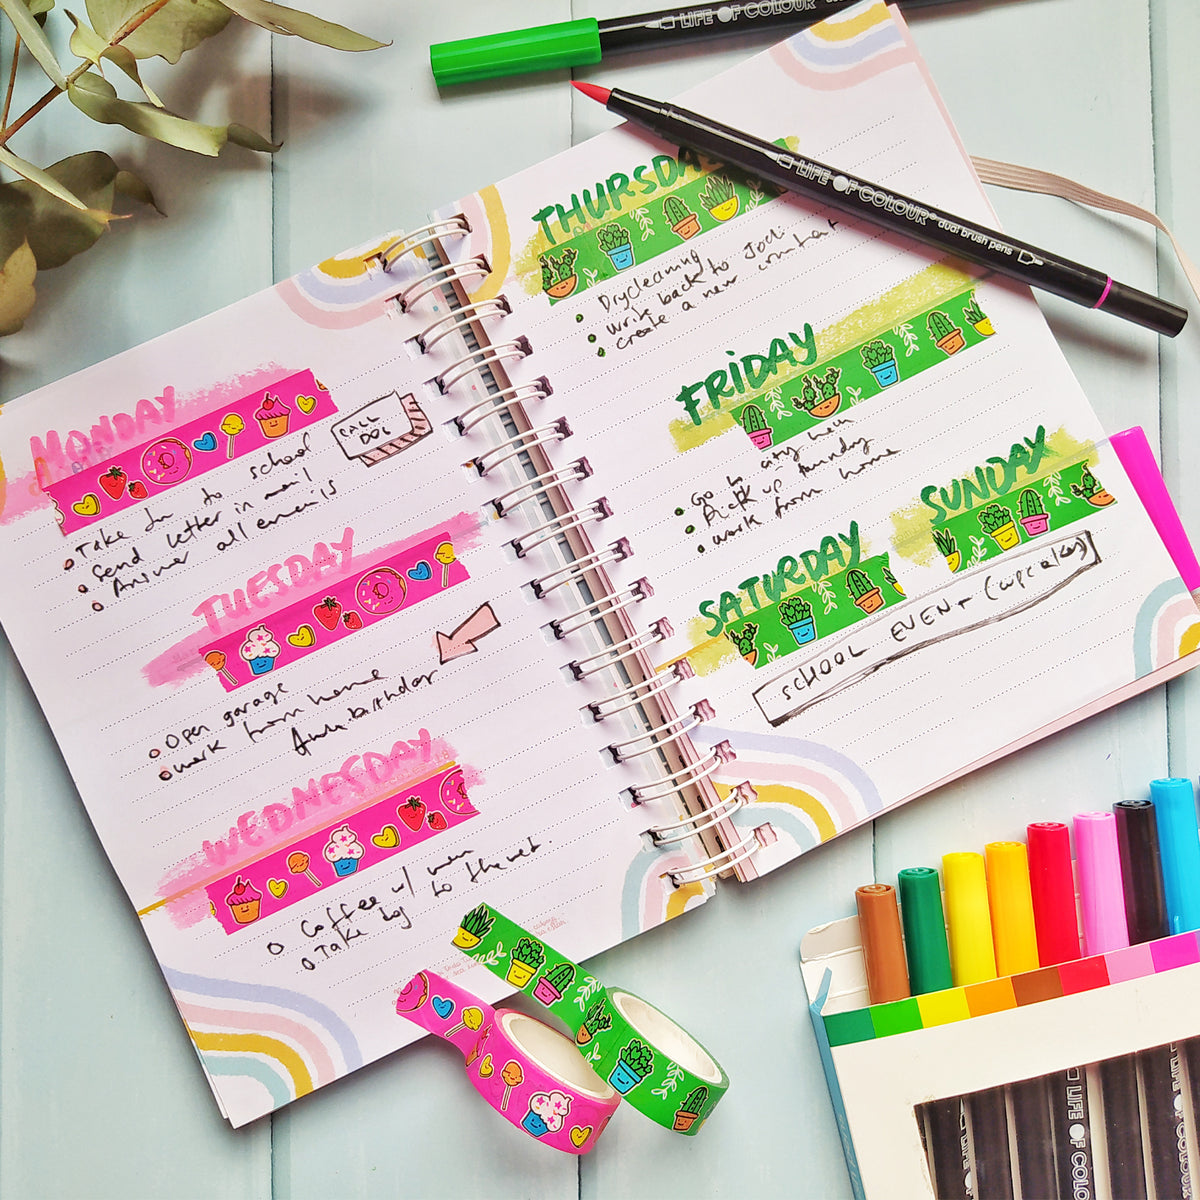 LIFE OF COLOUR
LIFE OF COLOUR® dual brush pens
MONDAY
Take to school
Send letter in mail
Answer all emails
CALL
TUESDAY
Open garage
Work from home
birthday
WEDNESDAY
Coffee w/ mum
Take to the vet.
THURSDA
Drycleaning
Write back to Jodi
create a new contract
FRIDAY
Go to city
Pick up laundry
work from home
SATURDAY
SUNDAY
SCHOOL EVENT (cupcakes)
LIFE OF COLOUR
LIFE OF COLO